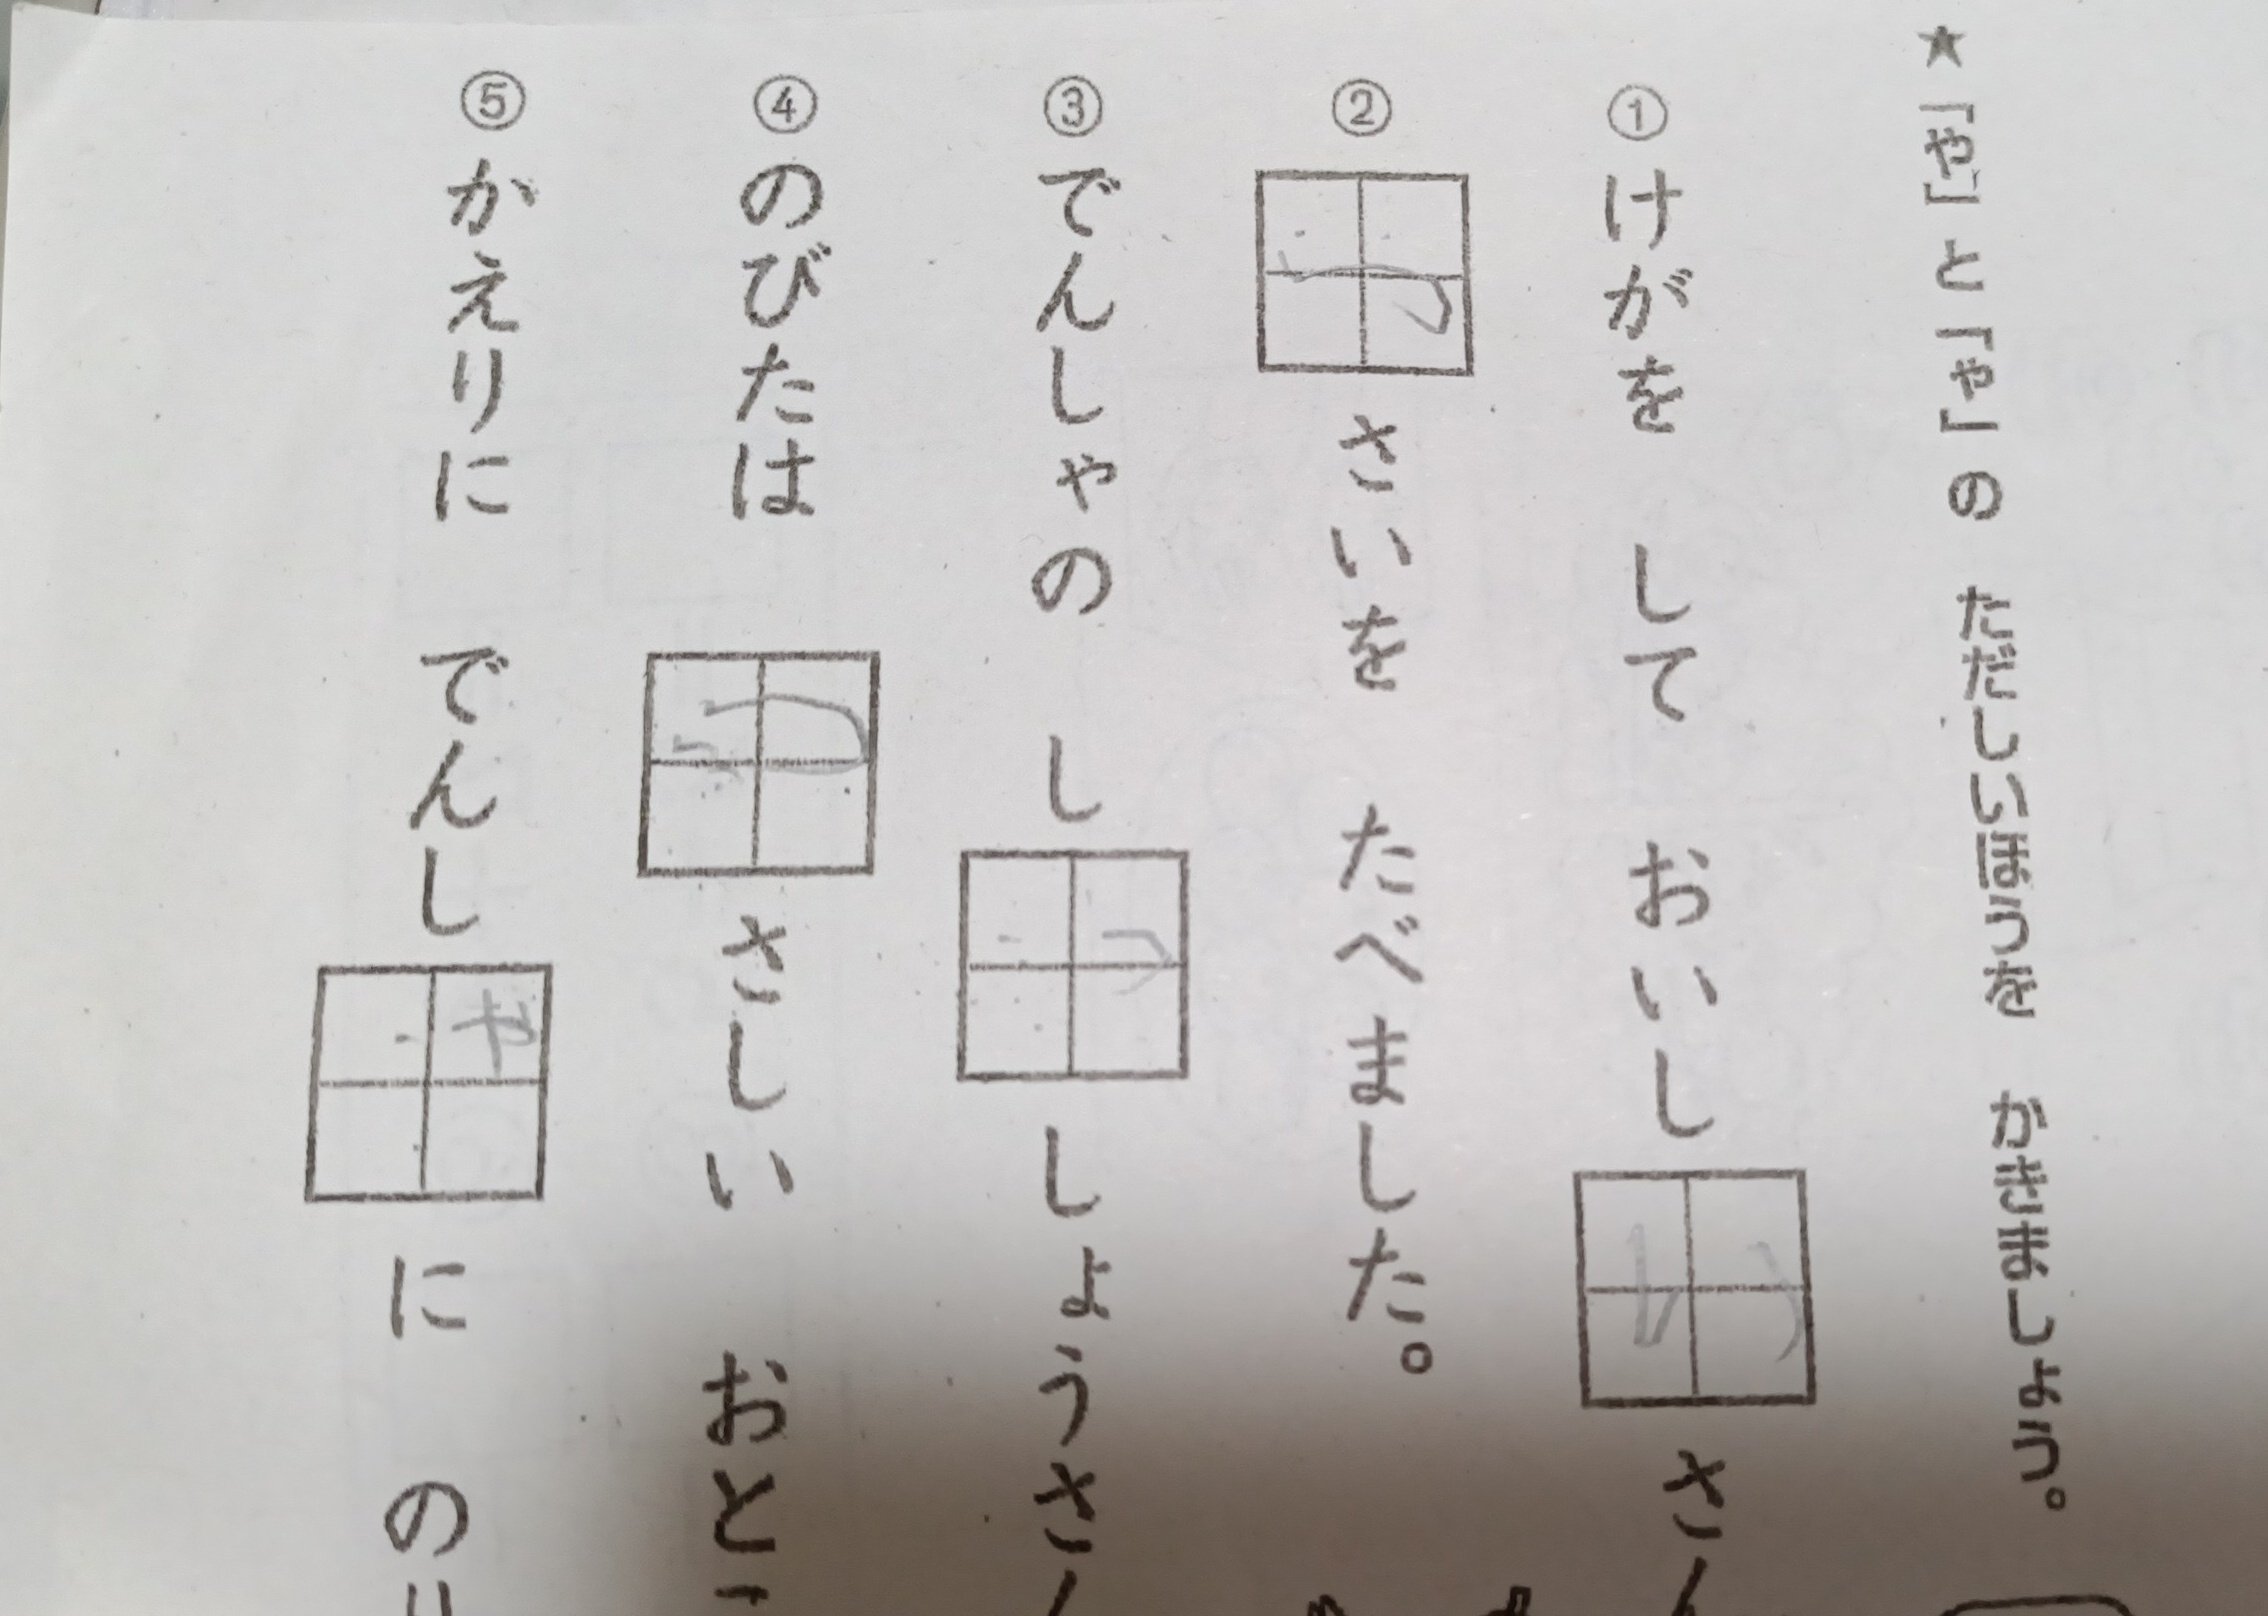 ★「や」と「ゃ」の ただしいほうを かきましょう。
①けがを して おいし さん
② さいを たべました。
③でんしゃの し しょうさん
④のびたは さしい おとこ
⑤かえりに でんし や に のり